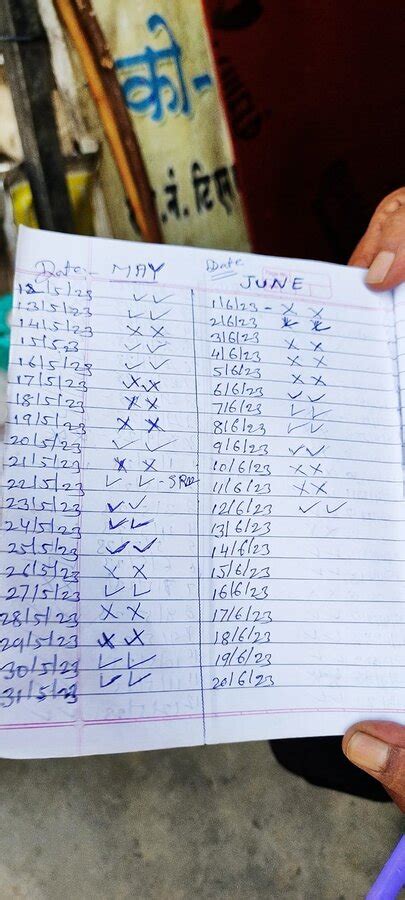 को-
नं.
Date:- MAY
12/5/23 ✓✓
13/5/23 ✓✓
14/5/23 ××
15/5/23 ✓✓
16/5/23 ✓✓
17/5/23 ××
18/5/23 ××
19/5/23 ××
20/5/23 ✓✓
21/5/23 ××
22/5/23 ✓✓
23/5/23 ✓✓
24/5/23 ✓✓
25/5/23 ✓✓
26/5/23 ××
27/5/23 ✓✓
28/5/23 ××
29/5/23 ××
30/5/23 ✓✓
31/5/23 ✓✓
Date:
JUNE
1/6/23- ××
2/6/23 ××
3/6/23 ××
4/6/23 ××
5/6/23 ××
6/6/23 ✓✓
7/6/23 ✓✓
8/6/23 ✓✓
9/6/23 ✓✓
10/6/23 ××
11/6/23 ××
12/6/23 ✓✓
13/6/23
14/6/23
15/6/23
16/6/23
17/6/23
18/6/23
19/6/23
20/6/23